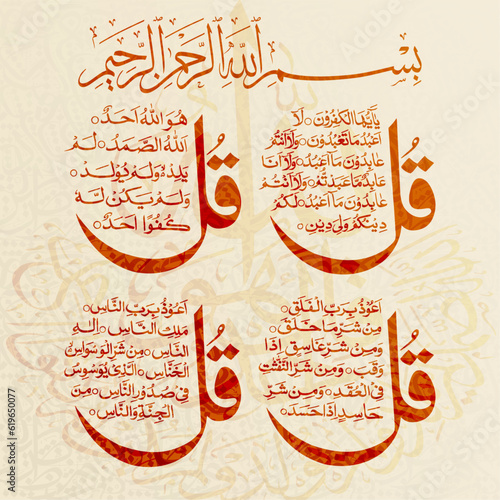 بِسْمِ ٱللَّهِ ٱلرَّحْمَٰنِ ٱلرَّحِيمِ
قُلْ
يٰٓاَيُّهَا الْكٰفِرُوْنَ ○ لَآ
اَعْبُدُ مَا تَعْبُدُوْنَ ○ وَلَآ اَنْتُمْ
عَابِدُوْنَ مَآ اَعْبُدُ ○ وَلَآ اَنَا
عَابِدٌ مَّا عَبَدْتُّمْ ○ وَلَآ اَنْتُمْ
عَابِدُوْنَ مَآ اَعْبُدُ ○ لَكُمْ
دِيْنُكُمْ وَلِيَ دِيْنِ ○
قُلْ
هُوَ اللّٰهُ اَحَدٌ ○
اَللّٰهُ الصَّمَدُ ○ لَمْ
يَلِدْ ○ وَلَمْ يُوْلَدْ ○
وَلَمْ يَكُنْ لَّهٗ
كُفُوًا اَحَدٌ ○
قُلْ
اَعُوْذُ بِرَبِّ الْفَلَقِ ○
مِنْ شَرِّ مَا خَلَقَ ○
وَمِنْ شَرِّ غَاسِقٍ اِذَا
وَقَبَ ○ وَمِنْ شَرِّ النَّفّٰثٰتِ
فِي الْعُقَدِ ○ وَمِنْ شَرِّ
حَاسِدٍ اِذَا حَسَدَ ○
قُلْ
اَعُوْذُ بِرَبِّ النَّاسِ ○
مَلِكِ النَّاسِ ○ اِلٰهِ
النَّاسِ ○ مِنْ شَرِّ الْوَسْوَاسِ
الْخَنَّاسِ ○ الَّذِيْ يُوَسْوِسُ
فِيْ صُدُوْرِ النَّاسِ ○ مِنَ
الْجِنَّةِ وَالنَّاسِ ○
Adobe Stock | #619650077